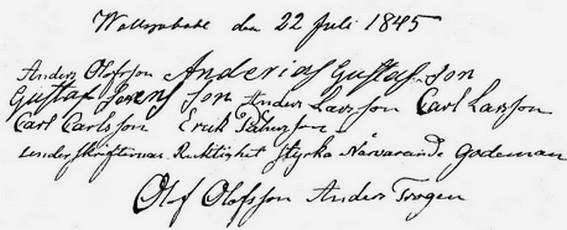 den 22 Juli 1845
Anders Olofsson Anderias Gustafson
Gustaf Jonsson Anders Larsson Carl Larsson
Carl Carlsson Erick
underskrifternas Ricktighet styrka Närvarande Godeman
Olof Olofsson Anders Trogen